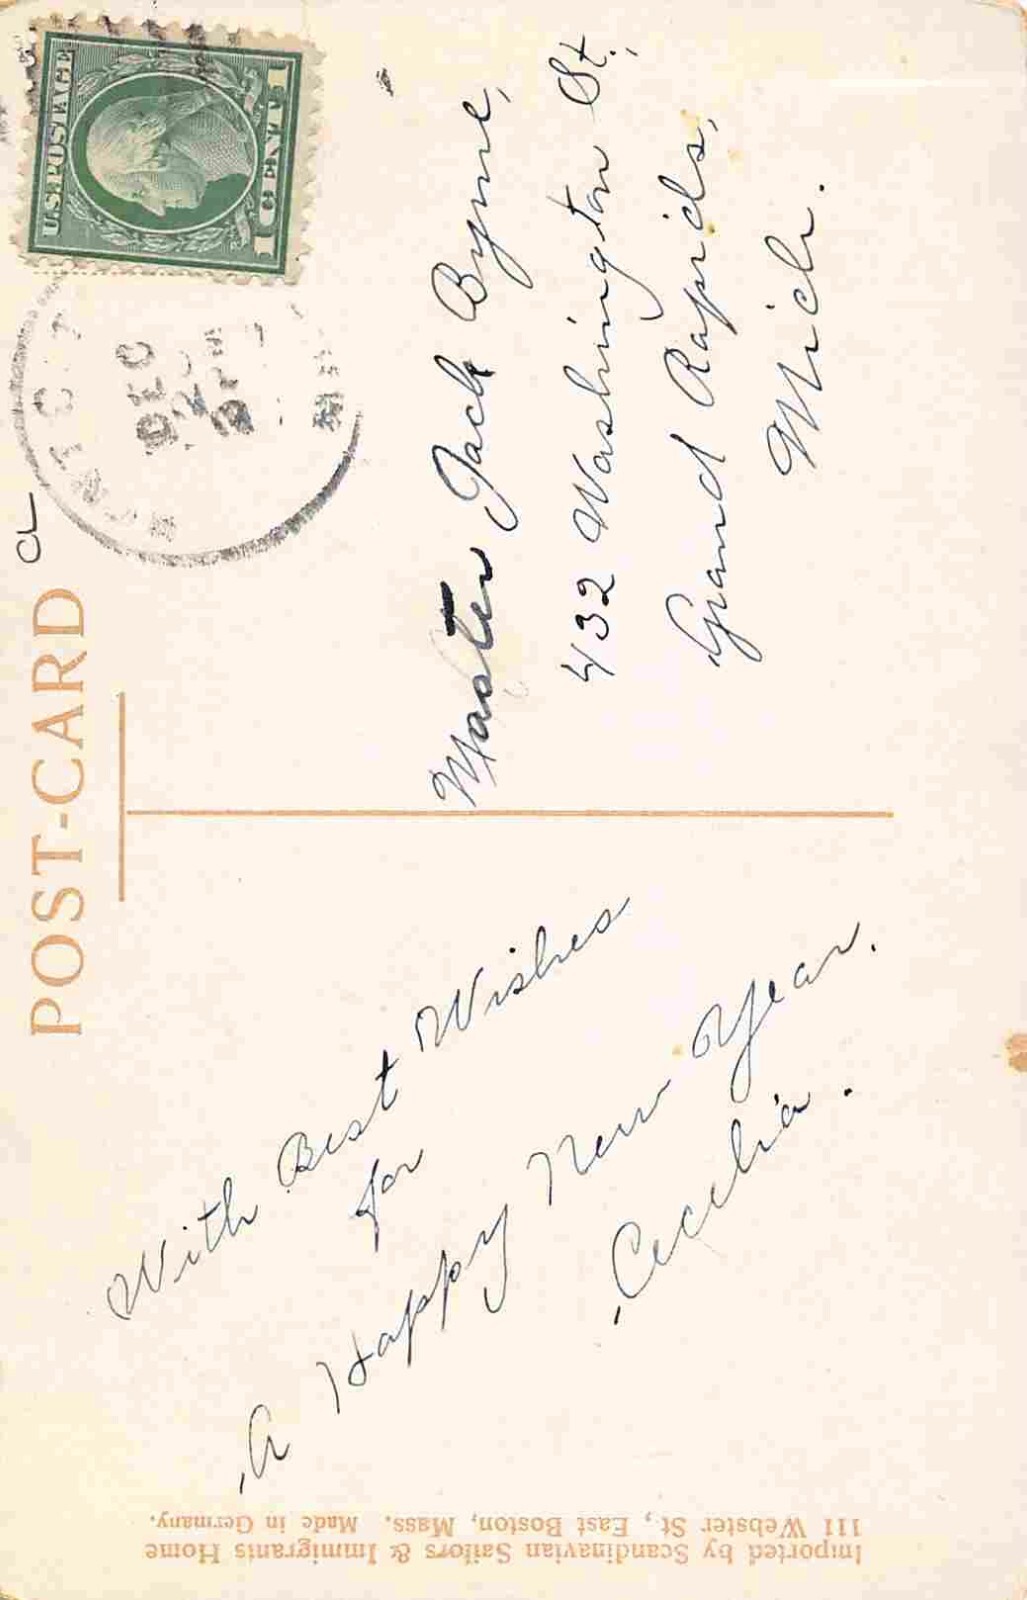 POST-CARD
U.S. POSTAGE
1 CENT 1
DEC
MICH
With Best Wishes
for
A Happy New Year.
Cecelia.
Master Jack Byrne,
432 Washington St.,
Grand Rapids,
Mich.
Imported by Scandinavian Sailors & Immigrants Home
111 Webster St, East Boston, Mass. Made in Germany.